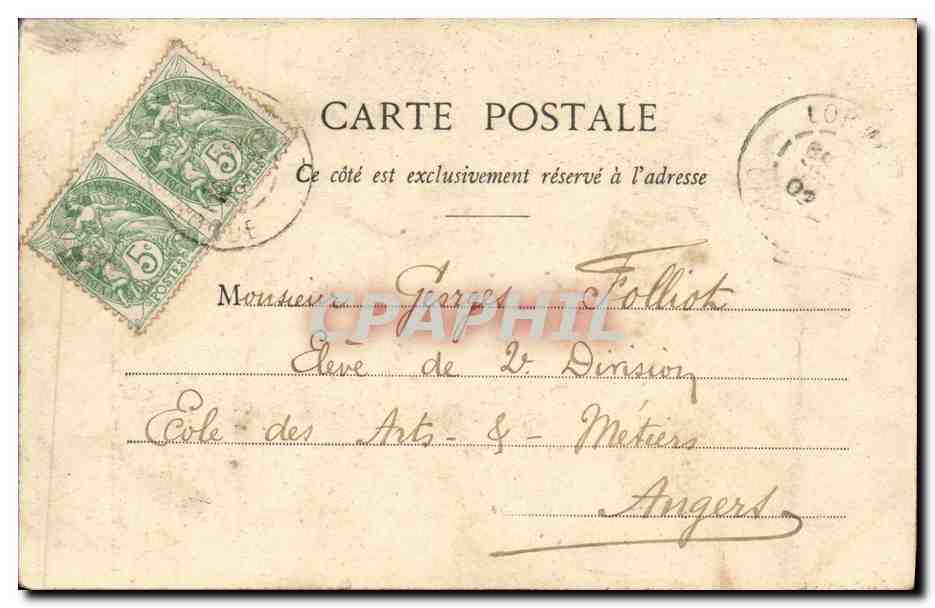 CARTE POSTALE
Ce côté est exclusivement réservé à l'adresse
Monsieur Georges Folliot
Elève de 2e Division
Ecole des Arts - & - Métiers
Angers
CPAPHIL
5c
POSTES
5c
POSTES